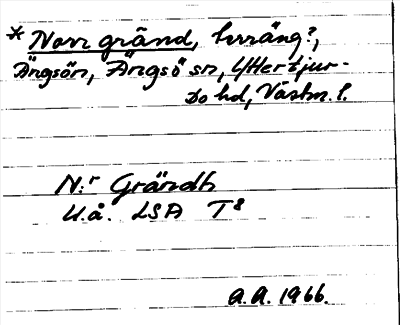 * Norr gränd, terräng?,
Ängsön, Ängsö sn, Yttertjur-
bo hd, Västm. l.
N:r Grändh
U.å. LSA T8
A.A. 1966.